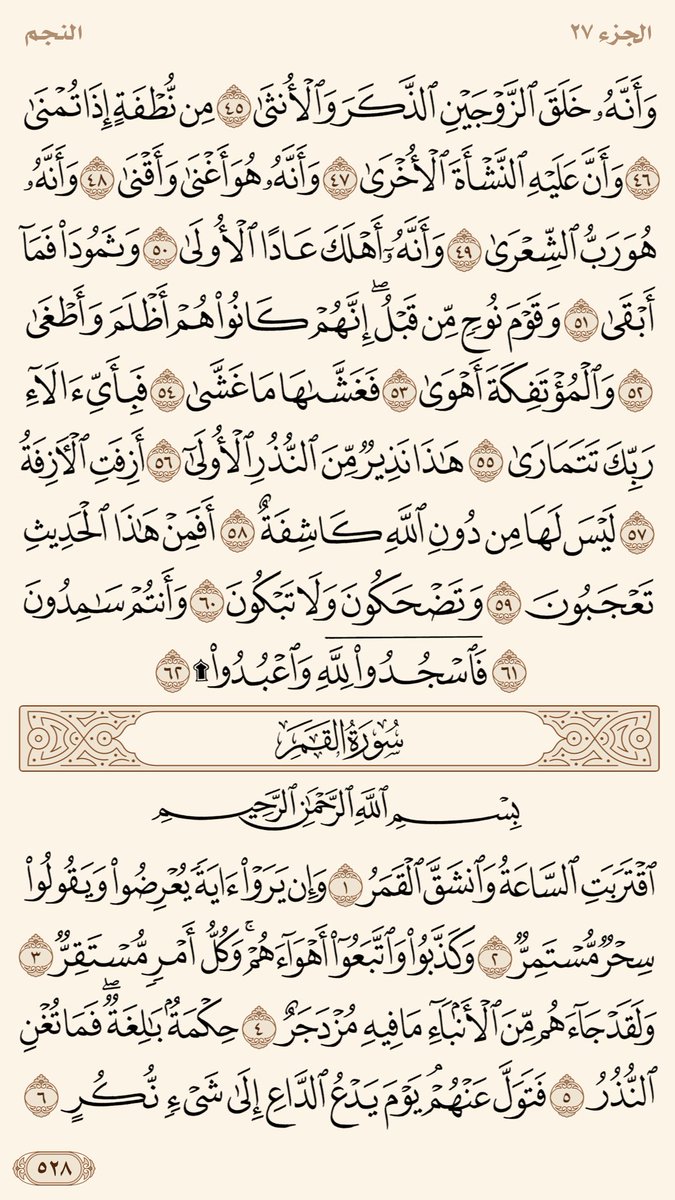 الجزء ٢٧ النجم
وَأَنَّهُۥ خَلَقَ ٱلزَّوْجَيْنِ ٱلذَّكَرَ وَٱلْأُنثَىٰ ٤٥ مِن نُّطْفَةٍ إِذَا تُمْنَىٰ
٤٦ وَأَنَّ عَلَيْهِ ٱلنَّشْأَةَ ٱلْأُخْرَىٰ ٤٧ وَأَنَّهُۥ هُوَ أَغْنَىٰ وَأَقْنَىٰ ٤٨ وَأَنَّهُۥ
هُوَ رَبُّ ٱلشِّعْرَىٰ ٤٩ وَأَنَّهُۥٓ أَهْلَكَ عَادًا ٱلْأُولَىٰ ٥٠ وَثَمُودَا۟ فَمَآ
أَبْقَىٰ ٥١ وَقَوْمَ نُوحٍ مِّن قَبْلُ ۖ إِنَّهُمْ كَانُوا۟ هُمْ أَظْلَمَ وَأَطْغَىٰ
٥٢ وَٱلْمُؤْتَفِكَةَ أَهْوَىٰ ٥٣ فَغَشَّىٰهَا مَا غَشَّىٰ ٥٤ فَبِأَىِّ ءَالَآءِ
رَبِّكَ تَتَمَارَىٰ ٥٥ هَٰذَا نَذِيرٌ مِّنَ ٱلنُّذُرِ ٱلْأُولَىٰٓ ٥٦ أَزِفَتِ ٱلْـَٔازِفَةُ
٥٧ لَيْسَ لَهَا مِن دُونِ ٱللَّهِ كَاشِفَةٌ ٥٨ أَفَمِنْ هَٰذَا ٱلْحَدِيثِ
تَعْجَبُونَ ٥٩ وَتَضْحَكُونَ وَلَا تَبْكُونَ ٦٠ وَأَنتُمْ سَٰمِدُونَ
٦١ فَٱسْجُدُوا۟ لِلَّهِ وَٱعْبُدُوا۟ ۩ ٦٢
سُورَةُ القَمَرِ
بِسْمِ ٱللَّهِ ٱلرَّحْمَٰنِ ٱلرَّحِيمِ
ٱقْتَرَبَتِ ٱلسَّاعَةُ وَٱنشَقَّ ٱلْقَمَرُ ١ وَإِن يَرَوْا۟ ءَايَةً يُعْرِضُوا۟ وَيَقُولُوا۟
سِحْرٌ مُّسْتَمِرٌّ ٢ وَكَذَّبُوا۟ وَٱتَّبَعُوٓا۟ أَهْوَآءَهُمْ ۚ وَكُلُّ أَمْرٍ مُّسْتَقِرٌّ ٣
وَلَقَدْ جَآءَهُم مِّنَ ٱلْأَنۢبَآءِ مَا فِيهِ مُزْدَجَرٌ ٤ حِكْمَةٌۢ بَٰلِغَةٌ ۖ فَمَا تُغْنِ
ٱلنُّذُرُ ٥ فَتَوَلَّ عَنْهُمْ ۘ يَوْمَ يَدْعُ ٱلدَّاعِ إِلَىٰ شَىْءٍ نُّكُرٍ ٦
٥٢٨